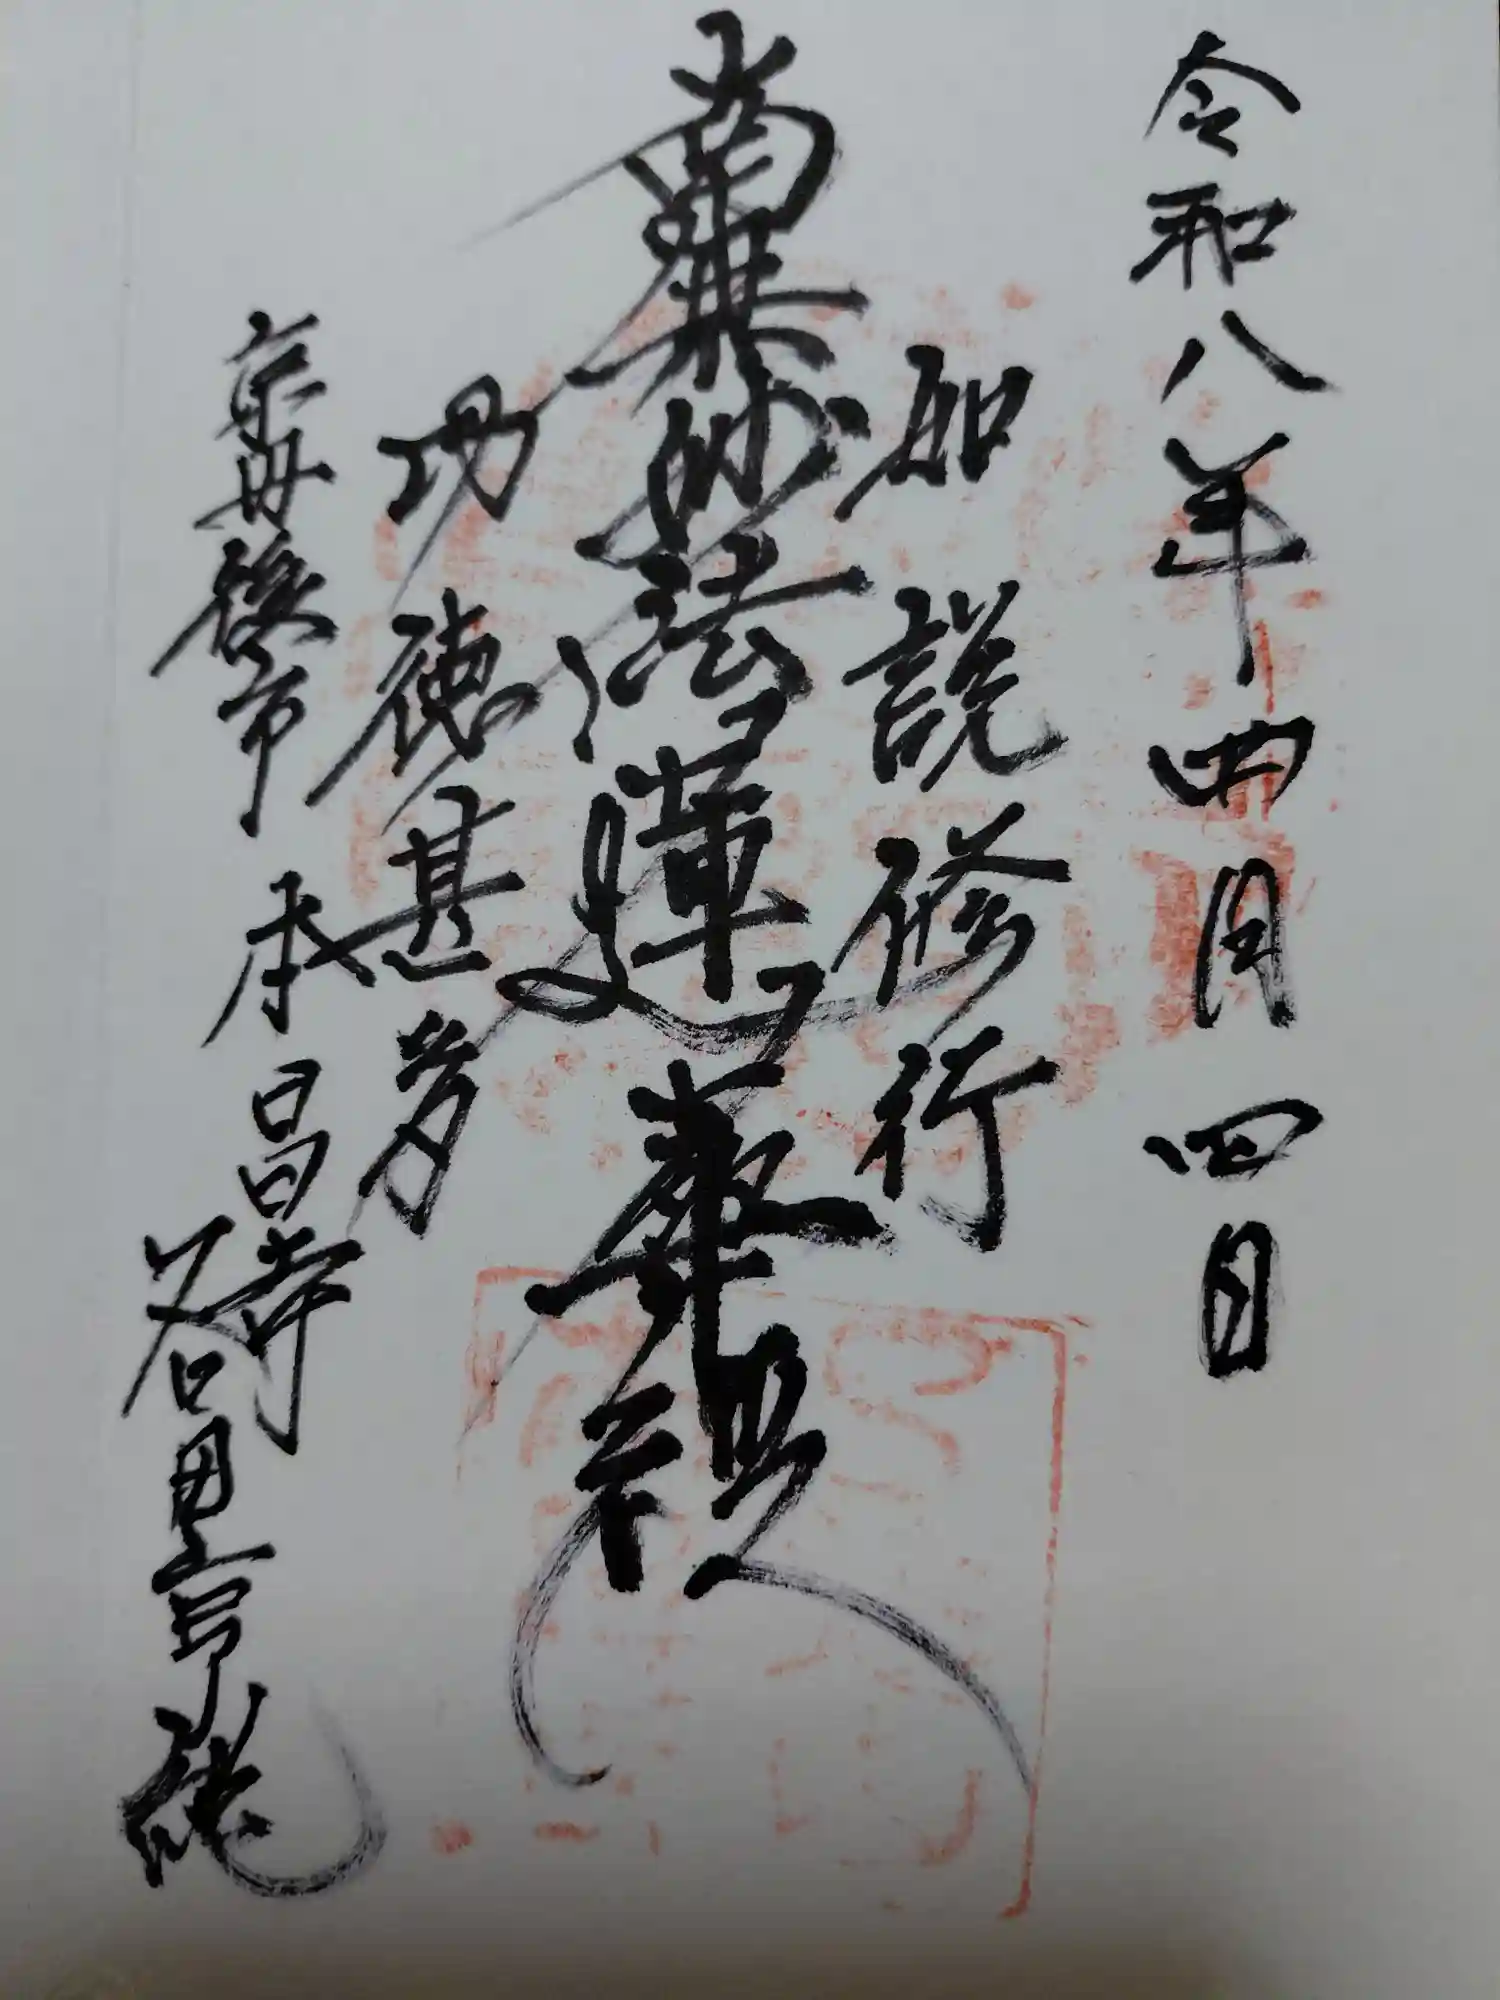 令和八年四月四日
如説修行
南無妙法蓮華経
功徳甚多
京丹後市 本昌寺